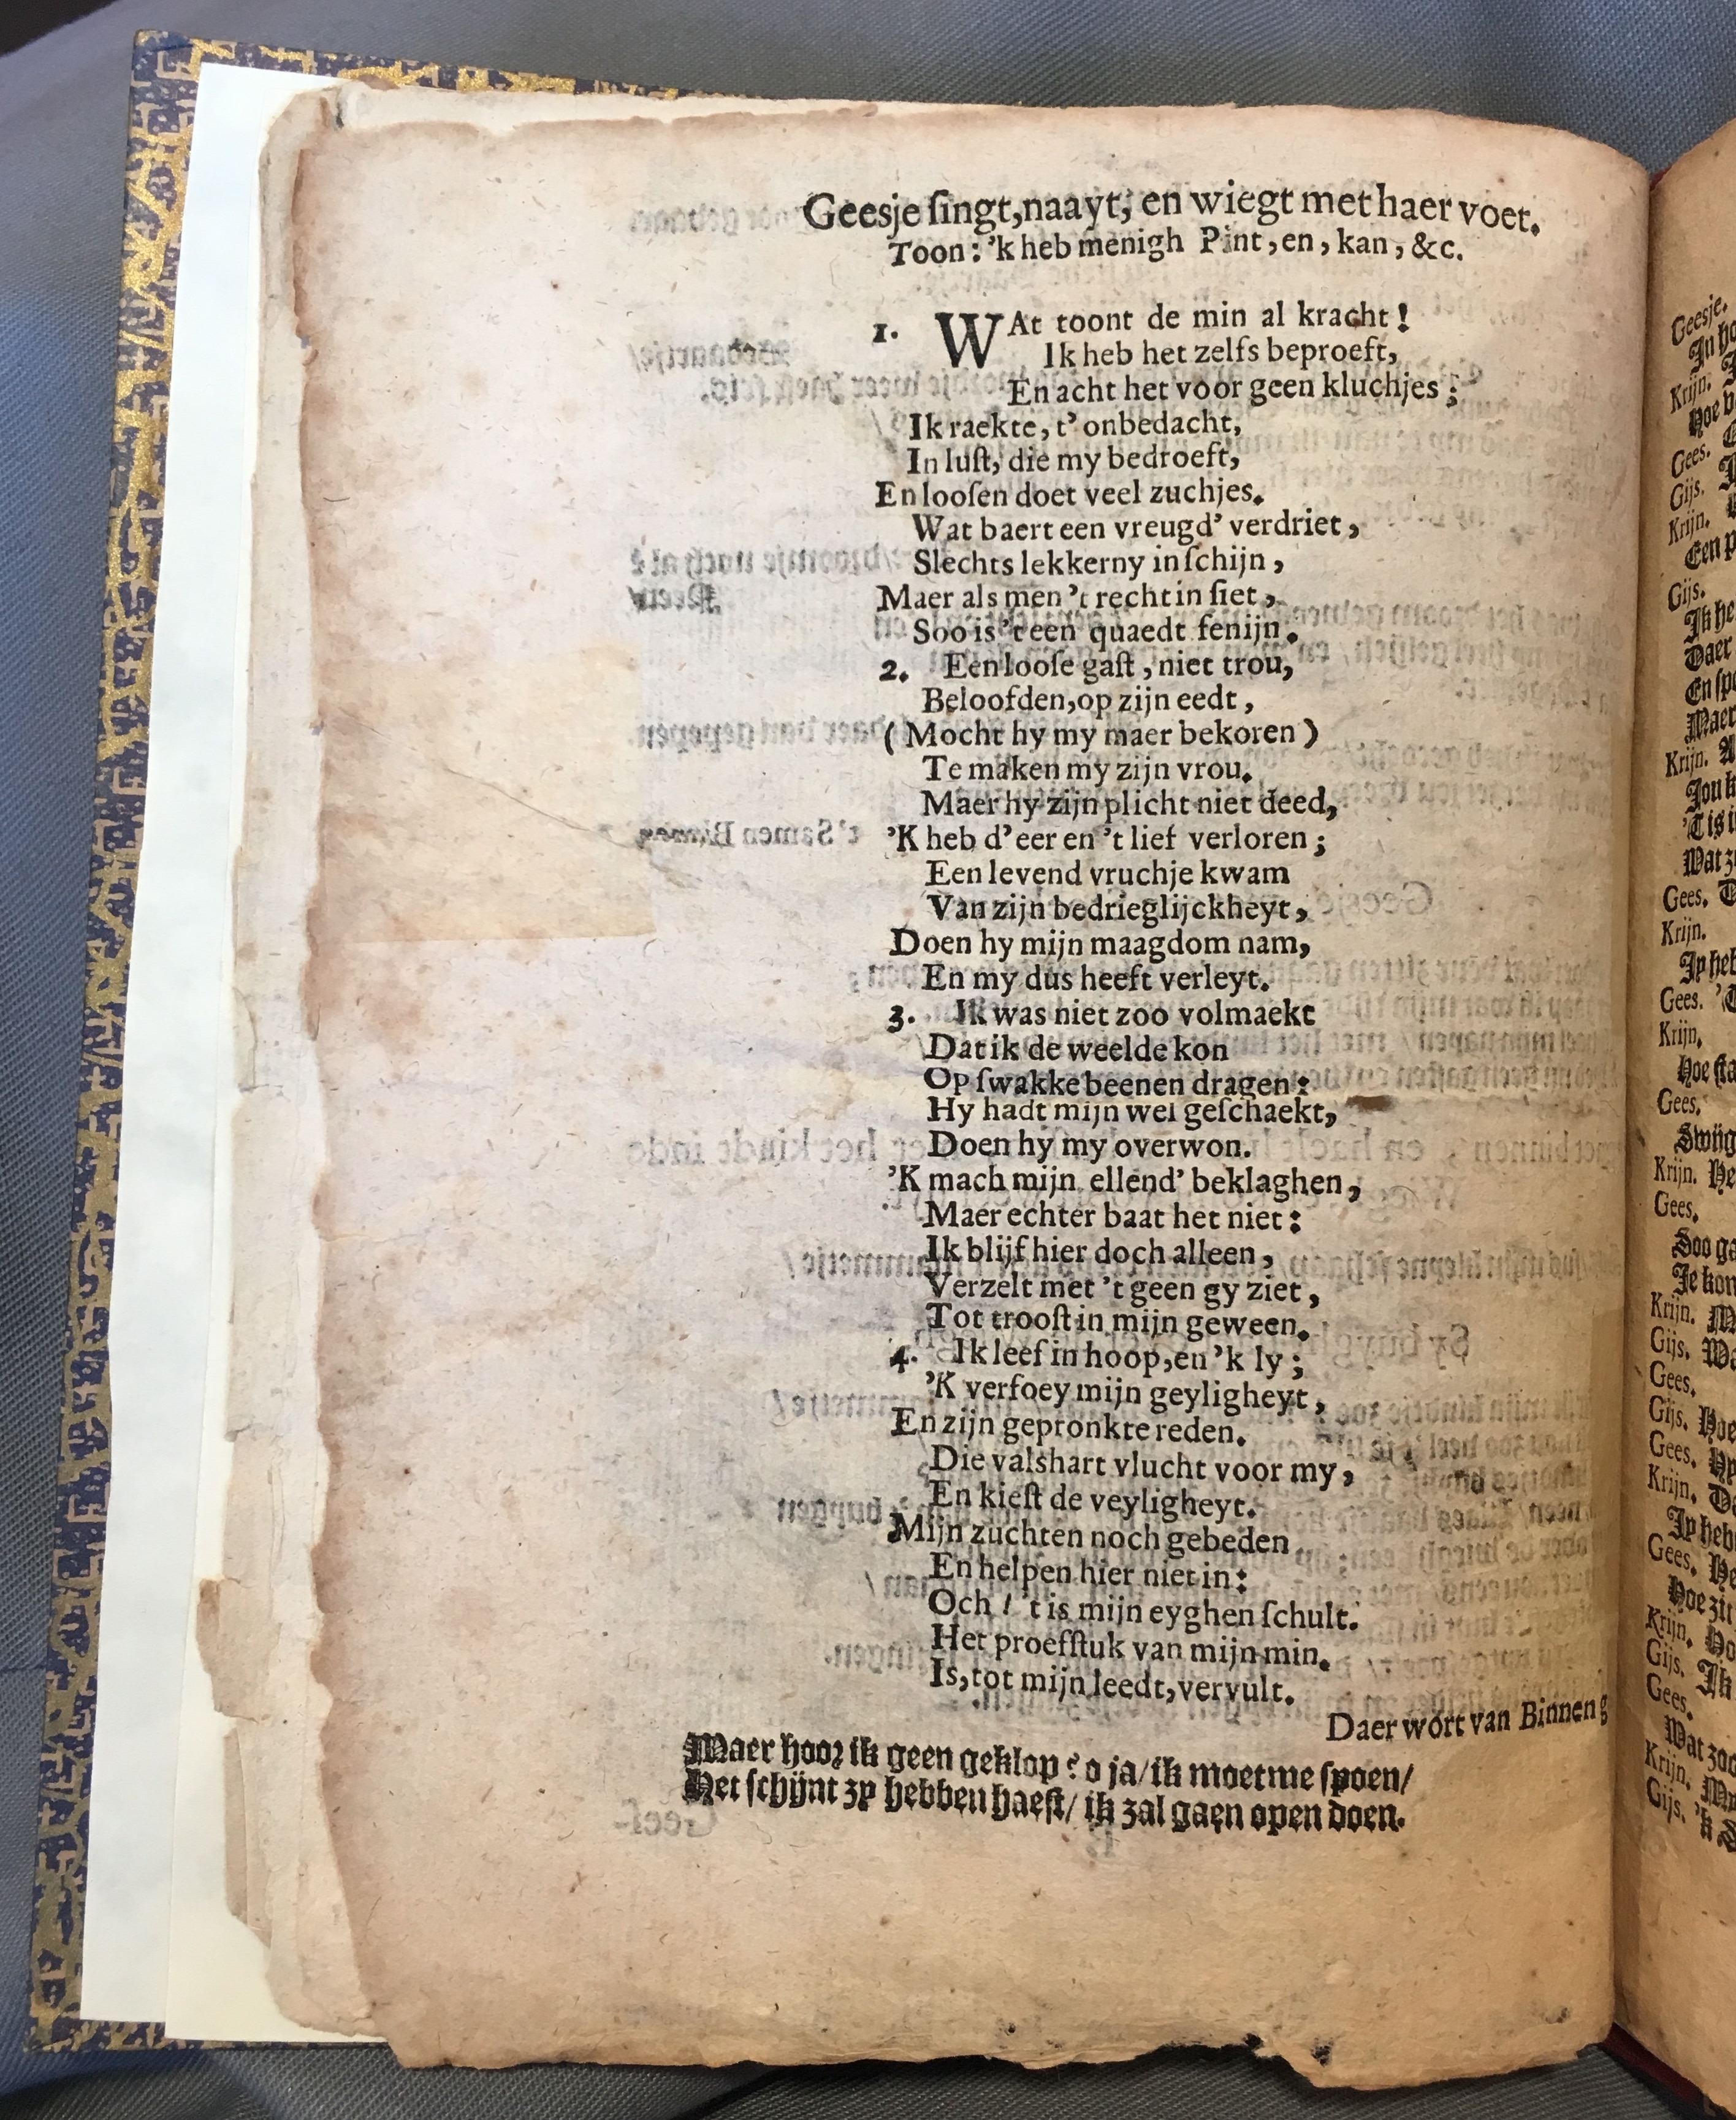 Geesje singt, naayt, en wiegt met haer voet.
Toon: 'k heb menigh Pint, en, kan, &c.
1. WAt toont de min al kracht!
Ik heb het zelfs beproeft,
En acht het voor geen kluchjes;
Ik raekte, t'onbedacht,
In lust, die my bedroeft,
En loosen doet veel zuchjes.
Wat baert een vreugd' verdriet,
Slechts lekkerny in schijn,
Maer als men 't recht in siet,
Soo is 't een quaedt fenijn.
2. Een loose gast, niet trou,
Beloofden, op zijn eedt,
(Mocht hy my maer bekoren)
Te maken my zijn vrou.
Maer hy zijn plicht niet deed,
'K heb d'eer en 't lief verloren;
Een levend vruchje kwam
Van zijn bedrieglijckheyt,
Doen hy mijn maagdom nam,
En my dus heeft verleyt.
3. Ik was niet zoo volmaekt
Dat ik de weelde kon
Op swakke beenen dragen:
Hy hadt mijn wel geschaekt,
Doen hy my overwon.
'K mach mijn ellend' beklaghen,
Maer echter baat het niet:
Ik blijf hier doch alleen,
Verzelt met 't geen gy ziet,
Tot troost in mijn geween.
4. Ik leef in hoop, en 'k ly;
'K verfoey mijn geyligheyt,
En zijn gepronkte reden.
Die valshart vlucht voor my,
En kiest de veyligheyt.
Mijn zuchten noch gebeden
En helpen hier niet in:
Och! 't is mijn eyghen schult.
Het proefstuk van mijn min.
Is, tot mijn leedt, vervult.
Daer wort van Binnen g
Maer hoor ik geen geklop? o ja/ ik moet me spoen/
Het schijnt zy hebben haest/ ik zal gaen open doen.
Geesje.
Krijn.
Gees.
Gijs.
Krijn.
Een
Gijs.
Ik he
Daer
En spe
Maer
Krijn. A
Jou k
'T is
Wat z
Gees.
Krijn.
Jy heb
Gees. 'T
Krijn.
Hoe sta
Gees.
Swijg
Krijn. He
Gees.
Soo ga
Je kon
Krijn.
Gijs. Wa
Gees.
Gijs. Hoe
Gees.
Krijn.
Jy heb
Gees. He
Hoe zit
Krijn. Ho
Gijs. Ik
Gees.
Wat zoo
Krijn.
Gijs. 'k